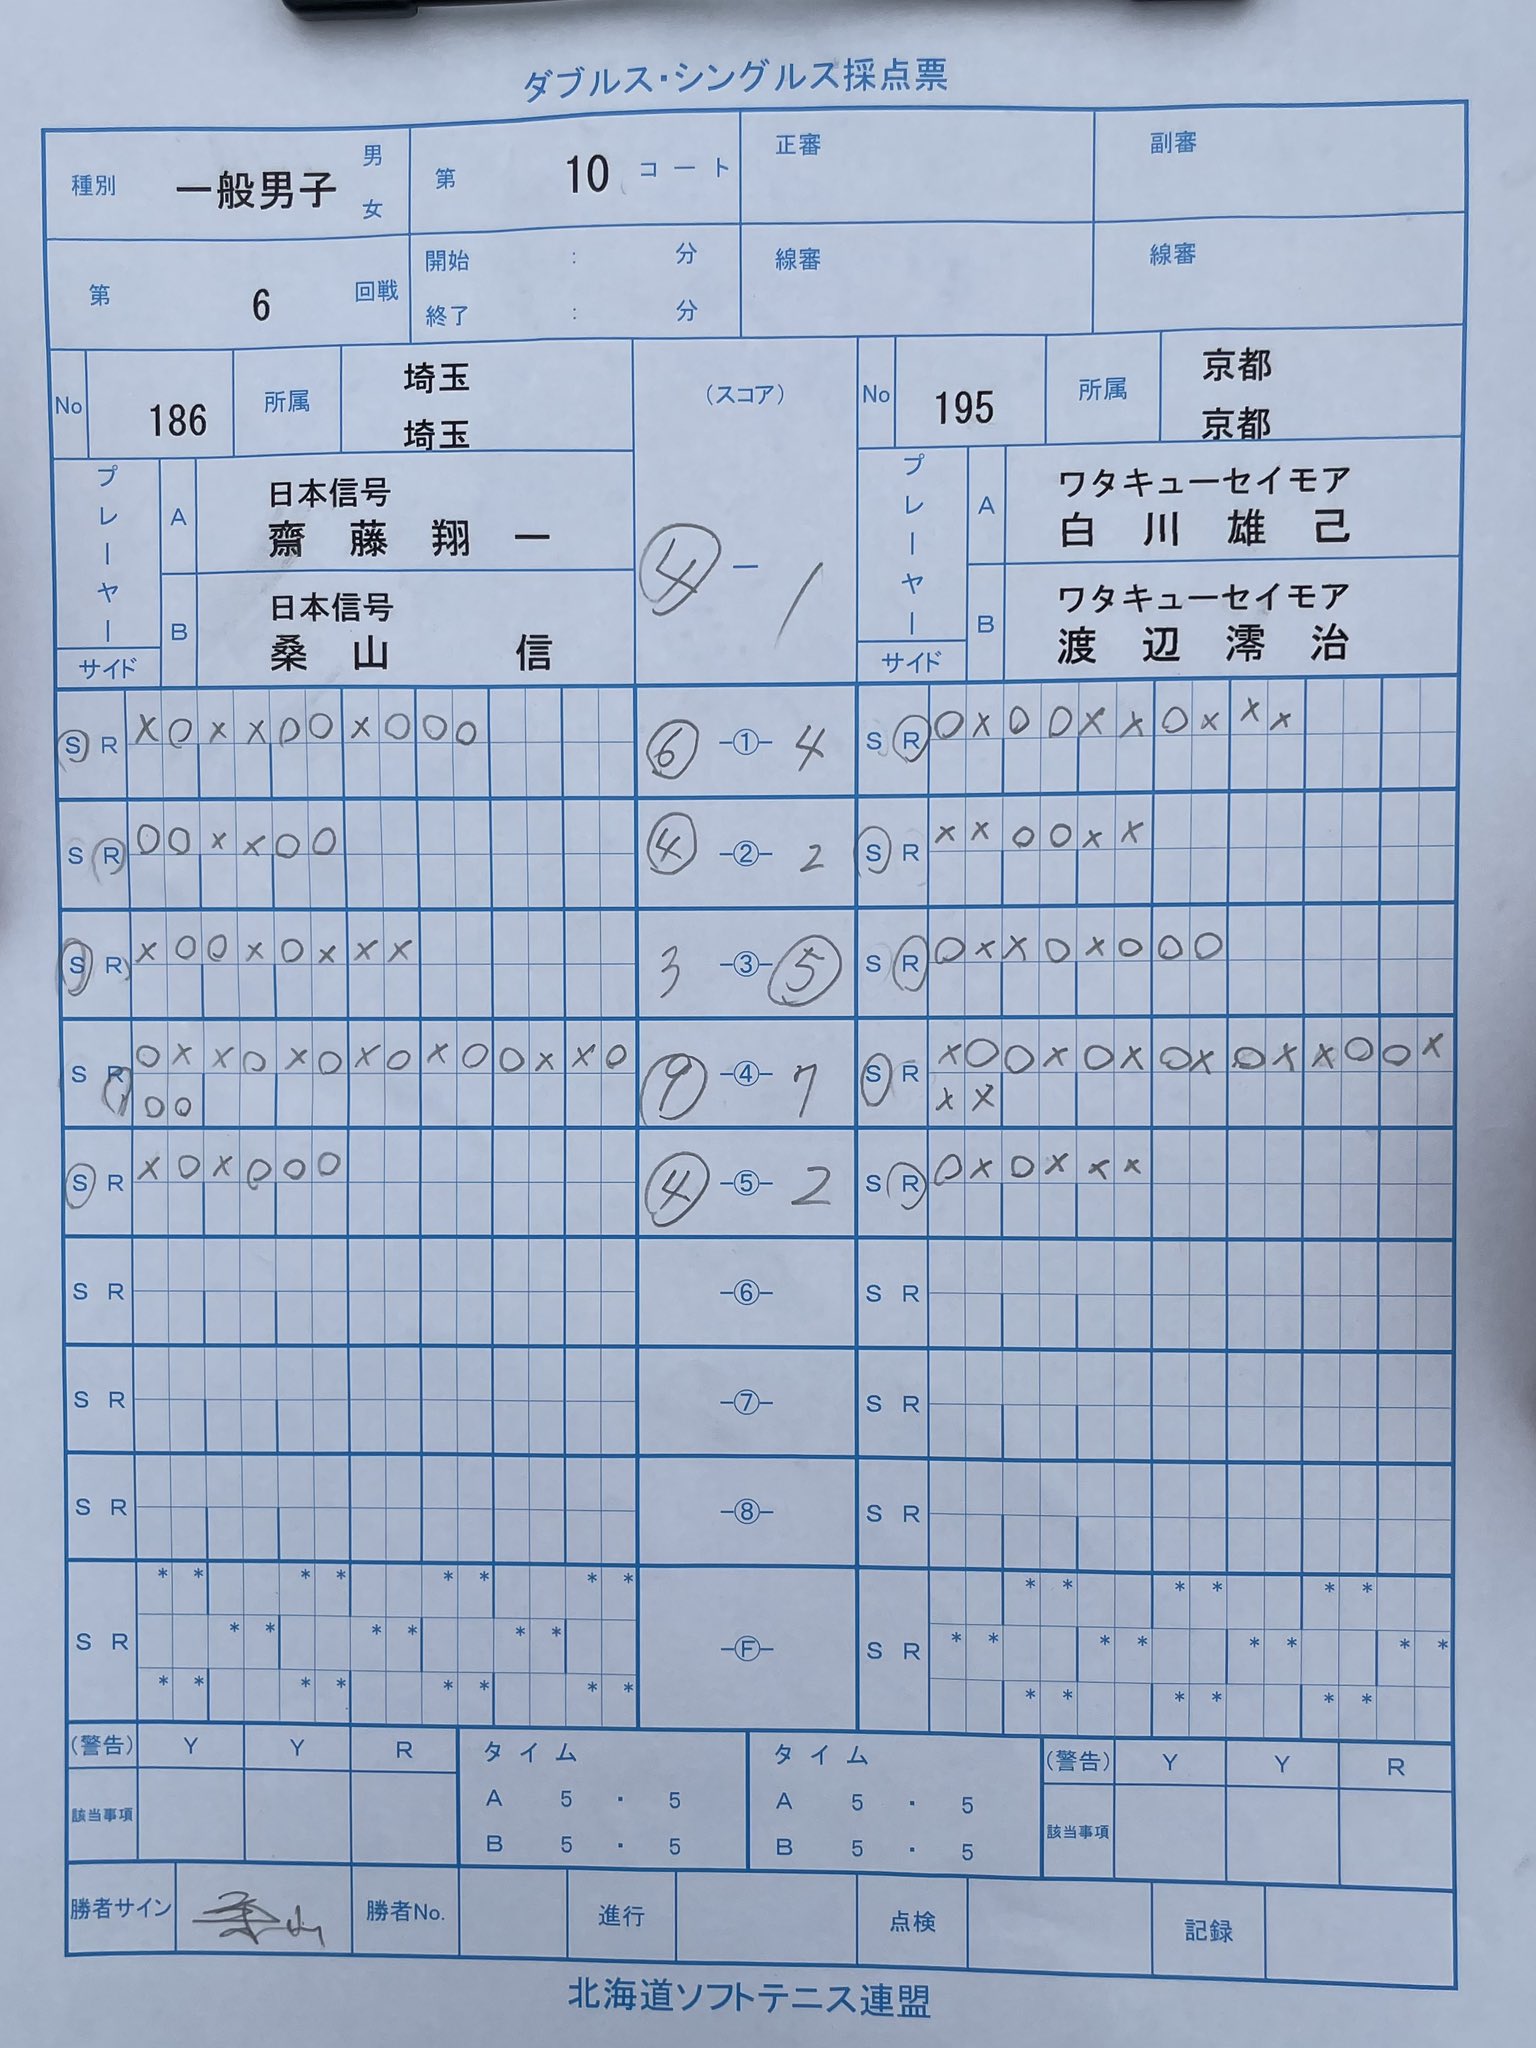 ダブルス・シングルス採点票
種別 一般男子 男 女 第 10 コート 正審 副審
第 6 回戦 開始 : 分 線審 線審
終了 : 分
No 186 所属 埼玉 埼玉 (スコア) No 195 所属 京都 京都
プレーヤー A 日本信号 齋藤翔一 ④ - 1 プレーヤー A ワタキューセイモア 白川雄己
B 日本信号 桑山信 B ワタキューセイモア 渡辺澪治
サイド サイド
S R ×○××○○×○○○ ⑥ -①- 4 S R ○×○○××○×××
S R ○○××○○ ④ -②- 2 S R ××○○××
S R ×○○×○××× 3 -③- ⑤ S R ○××○×○○○
S R ○××○×○×○×○○××○ ⑨ -④- 7 S R ×○○×○×○×○××○○×
○○ ××
S R ×○×○○○ ④ -⑤- 2 S R ○×○×××
S R -⑥- S R
S R -⑦- S R
S R -⑧- S R
* * * * * * * * * * * * * *
S R * * * * * * -Ⓕ- S R * * * * * * * *
* * * * * * * * * * * * * *
(警告) Y Y R タイム タイム (警告) Y Y R
該当事項 A 5 ・ 5 A 5 ・ 5 該当事項
B 5 ・ 5 B 5 ・ 5
勝者サイン 桑山 勝者No. 進行 点検 記録
北海道ソフトテニス連盟